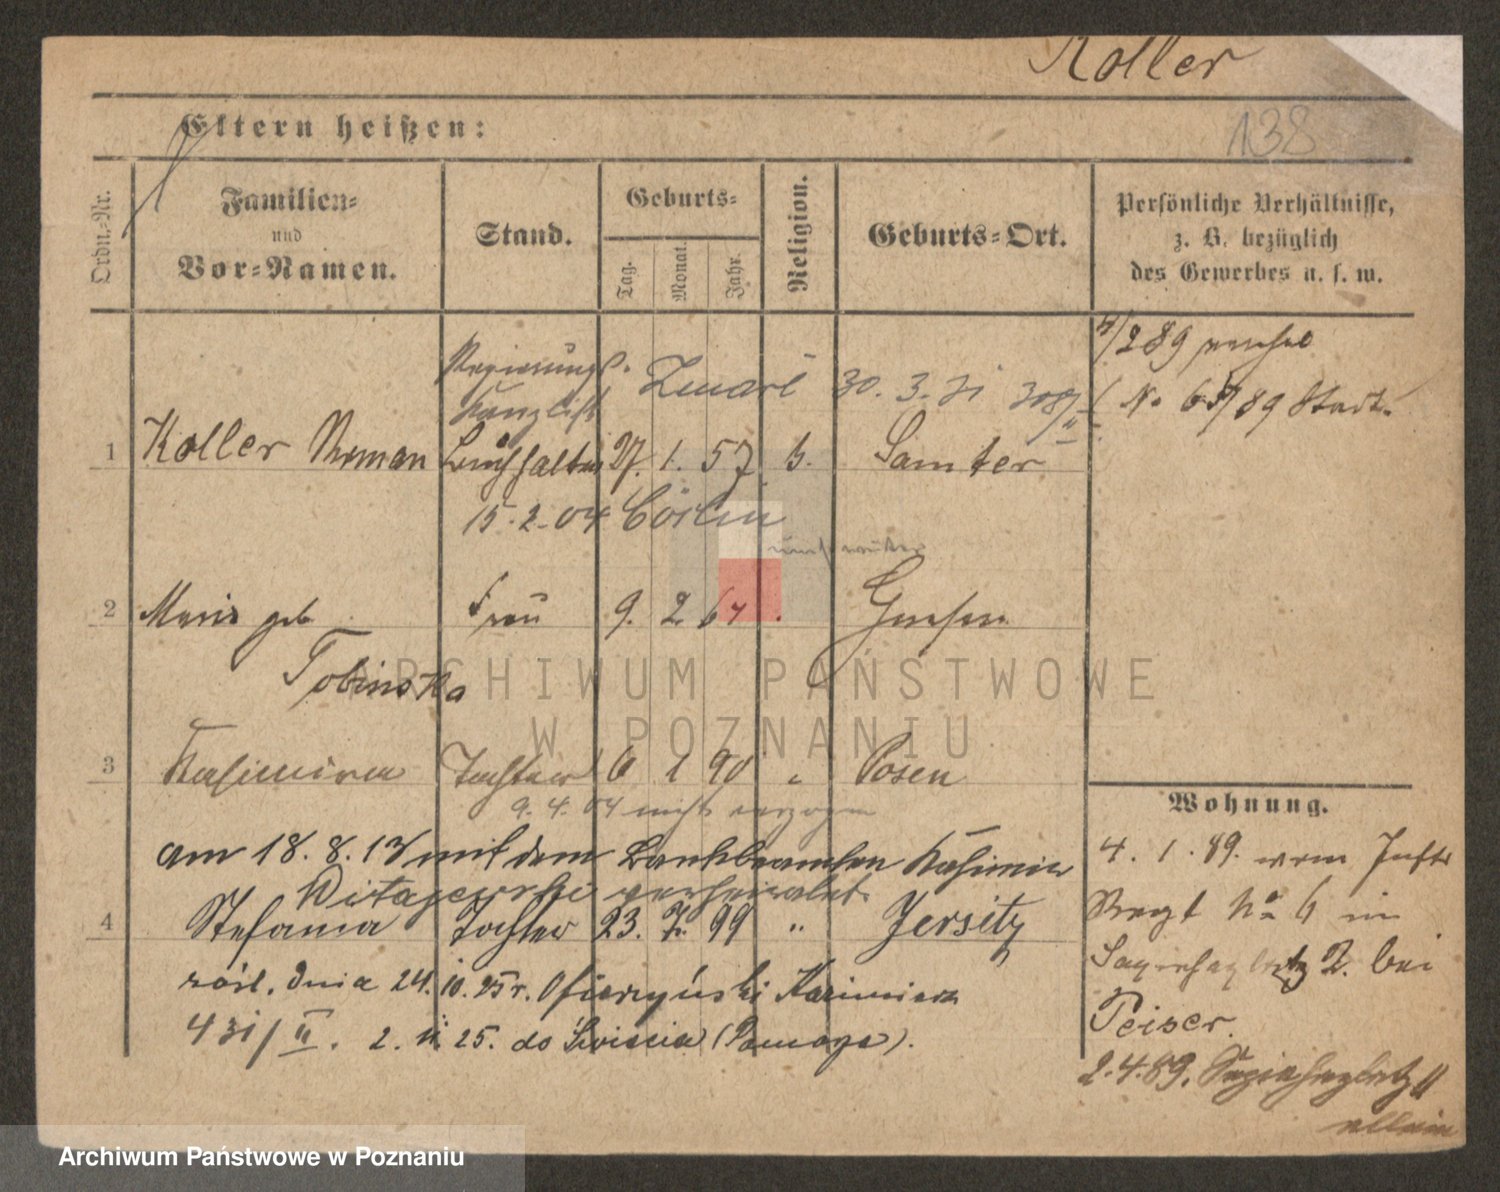 Koller
138
Eltern heißen:
Ordn.-Nr.
Familien-
und
Vor-Namen.
Stand.
Geburts-
Tag.
Monat.
Jahr.
Religion.
Geburts-Ort.
Persönliche Verhältnisse,
z. B. bezüglich
des Gewerbes u. s. w.
Regierungs-
Kanzlist
Zmarł 30. 3. 31
1 Koller Roman Buchhalter 27. 1. 57 Samter
15. 2. 04 Cöslin
2 Maria geb Frau 9. 2 64 Gnesen
Tobinska
3 Kasimira Tochter 6 1 90 " Posen
9. 4. 04 nicht verzogen
am 18. 8. 13 mit dem Bankbeamten Kasimir
verheiratet.
4 Stefania Tochter 23. 7. 99 " Jersitz
dnia 24. 10. 25 r. Ofierzyński Kazimierz
431/II. 2. 11. 25. do
4/2 89
No 65/89 Stadt.
Wohnung.
4. 1. 89. vom Inftr
Regt No 6 in
Sapiehaplatz 2. bei
Peiser.
2. 4. 89. Sapiehaplatz 11
allein
ARCHIWUM PAŃSTWOWE
W POZNANIU
Archiwum Państwowe w Poznaniu